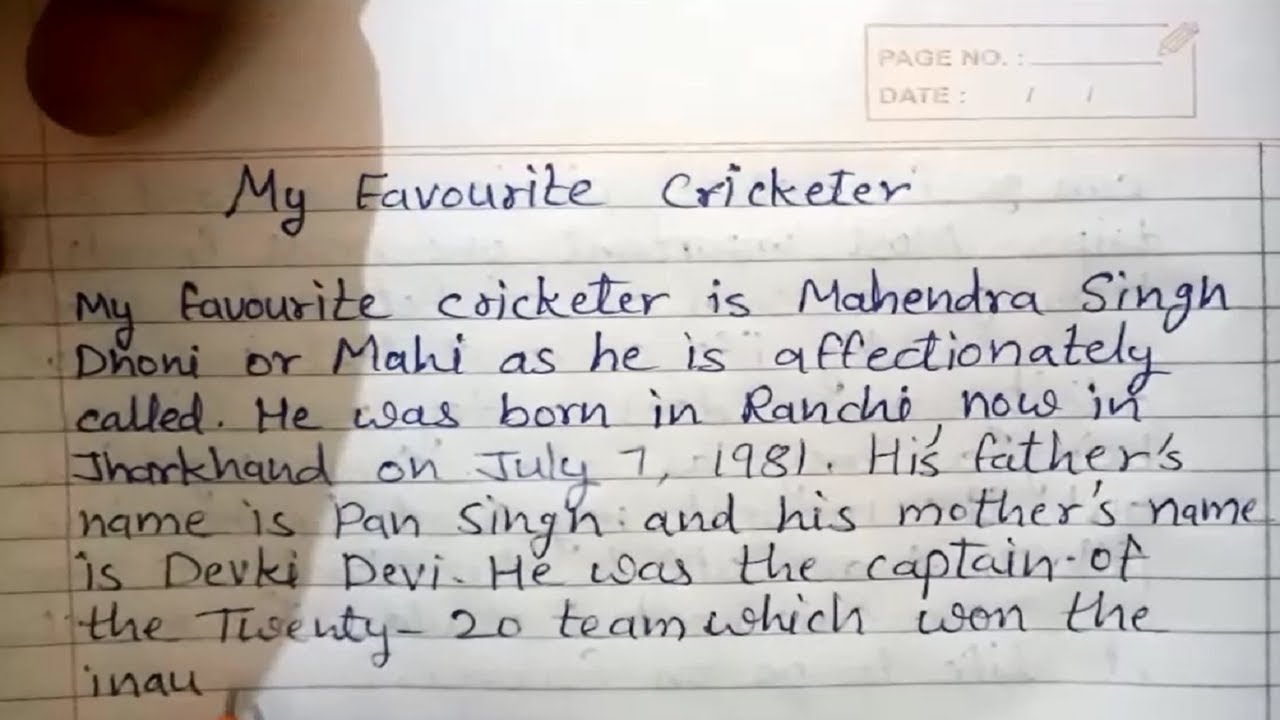 PAGE NO. :
DATE : / /
My Favourite Cricketer
My favourite cricketer is Mahendra Singh
Dhoni or Mahi as he is affectionately
called. He was born in Ranchi, now in
Jharkhand on July 7, 1981. His father's
name is Pan Singh and his mother's name
is Devki Devi. He was the captain of
the Twenty-20 team which won the
inau